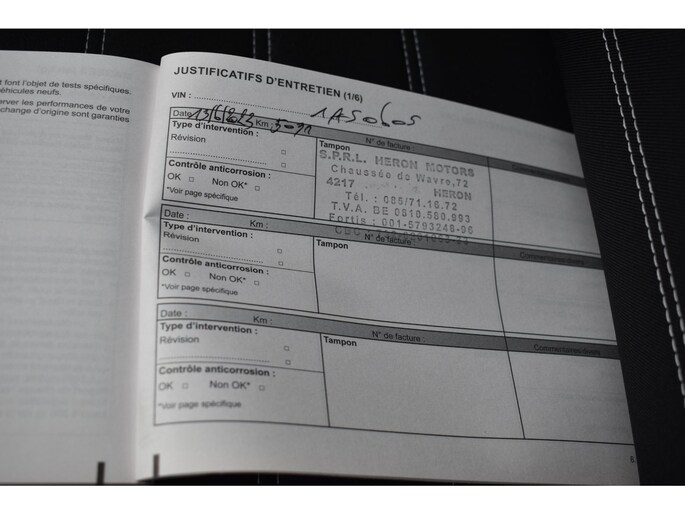 t font l'objet de tests spécifiques.
éhicules neufs.
erver les performances de votre
change d'origine sont garanties
JUSTIFICATIFS D'ENTRETIEN (1/6)
VIN :
Date Km : N° de facture :
Type d'intervention :
Révision
Contrôle anticorrosion :
OK Non OK*
*Voir page spécifique
Tampon
S.P.R.L. HERON MOTORS
Chaussée de Wavre,72
4217 HERON
Tél. : 085/71.16.72
T.V.A. BE 0810.580.993
Fortis : 001-5793248-96
Date : Km : N° de facture :
Commentaires/divers
Type d'intervention :
Révision
Contrôle anticorrosion :
OK Non OK*
*Voir page spécifique
Tampon
Date : Km : N° de facture :
Commentaires/divers
Type d'intervention :
Révision
Contrôle anticorrosion :
OK Non OK*
*Voir page spécifique
Tampon